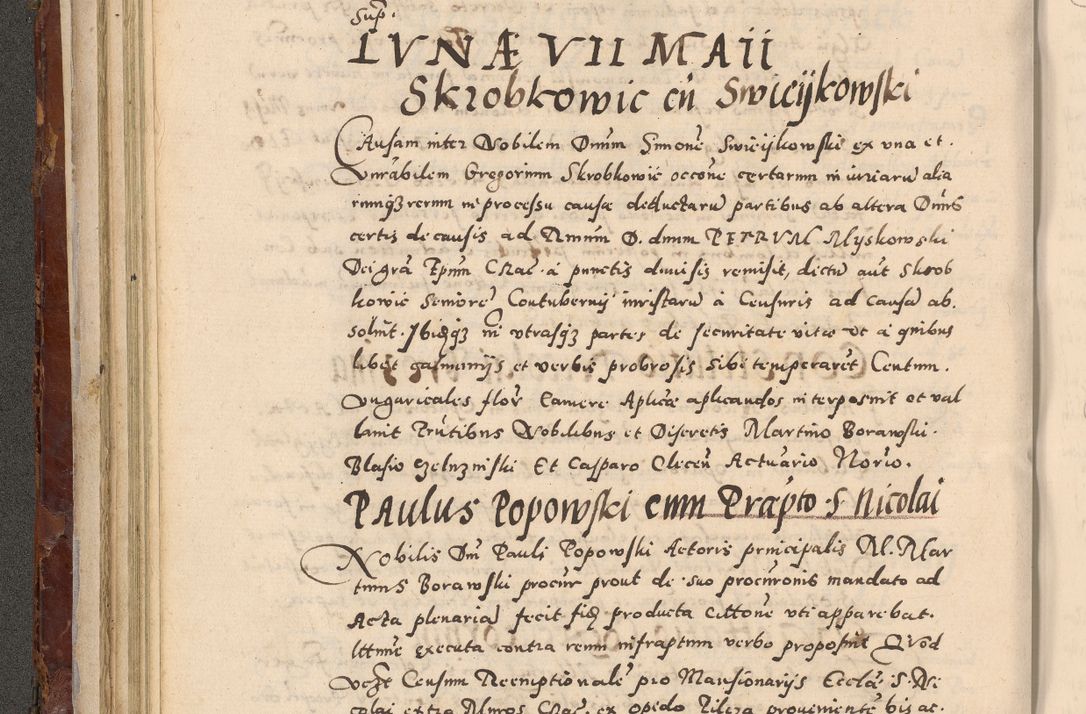 Sup.
LVNÆ VII MAII
Skrobkowic cū Swieijkowski
CAusam inter Nobilem Dnūm Simonē Swieijkowski ex vna et
Vnrabilem Gregorium Skrobkowic occōne certarum iniuriarū alia
rumqȝ rerum in processu causæ deductarū partibus ab altera Dnūs
certis de causis ad Rmūm D. dnum PETRVM Myskowski
Dei grā Epūm Crac. a punctis diuisis remisit, dictū aūt Skrob
kowic Seniorē Contubernij miristarū à Censuris ad causā ab
soluit. Ibidqȝ in vtrasqȝ partes de securitate vitæ et a quibus
libet calumnijs et verbis probrosis sibi temperarēt Centum
Vngaricales flor Camere Aplicæ aplicandos interposuit et val
lauit Prūtibus Nobilibus et Discretis Martino Borawski
Blasio Et Casparo Clecen Actuario Norio.
PAulus Popowski cum Præpto S Nicolai
Nobilis Dnī Pauli Popowski Actoris principalis M. Mar
tinus Borawski procūr prout de suo procūronis mandato ad
Acta plenariā fecit fidē producta Cittōne vti apparebat
lttīme executa contra reum infraptum verbo proposuit Quod
Censum Reemptionalē pro Mansionarijs Ecclæ S. Ni
colai extra Muros Crac. ex opedo Pilcza prouenientē bis ac